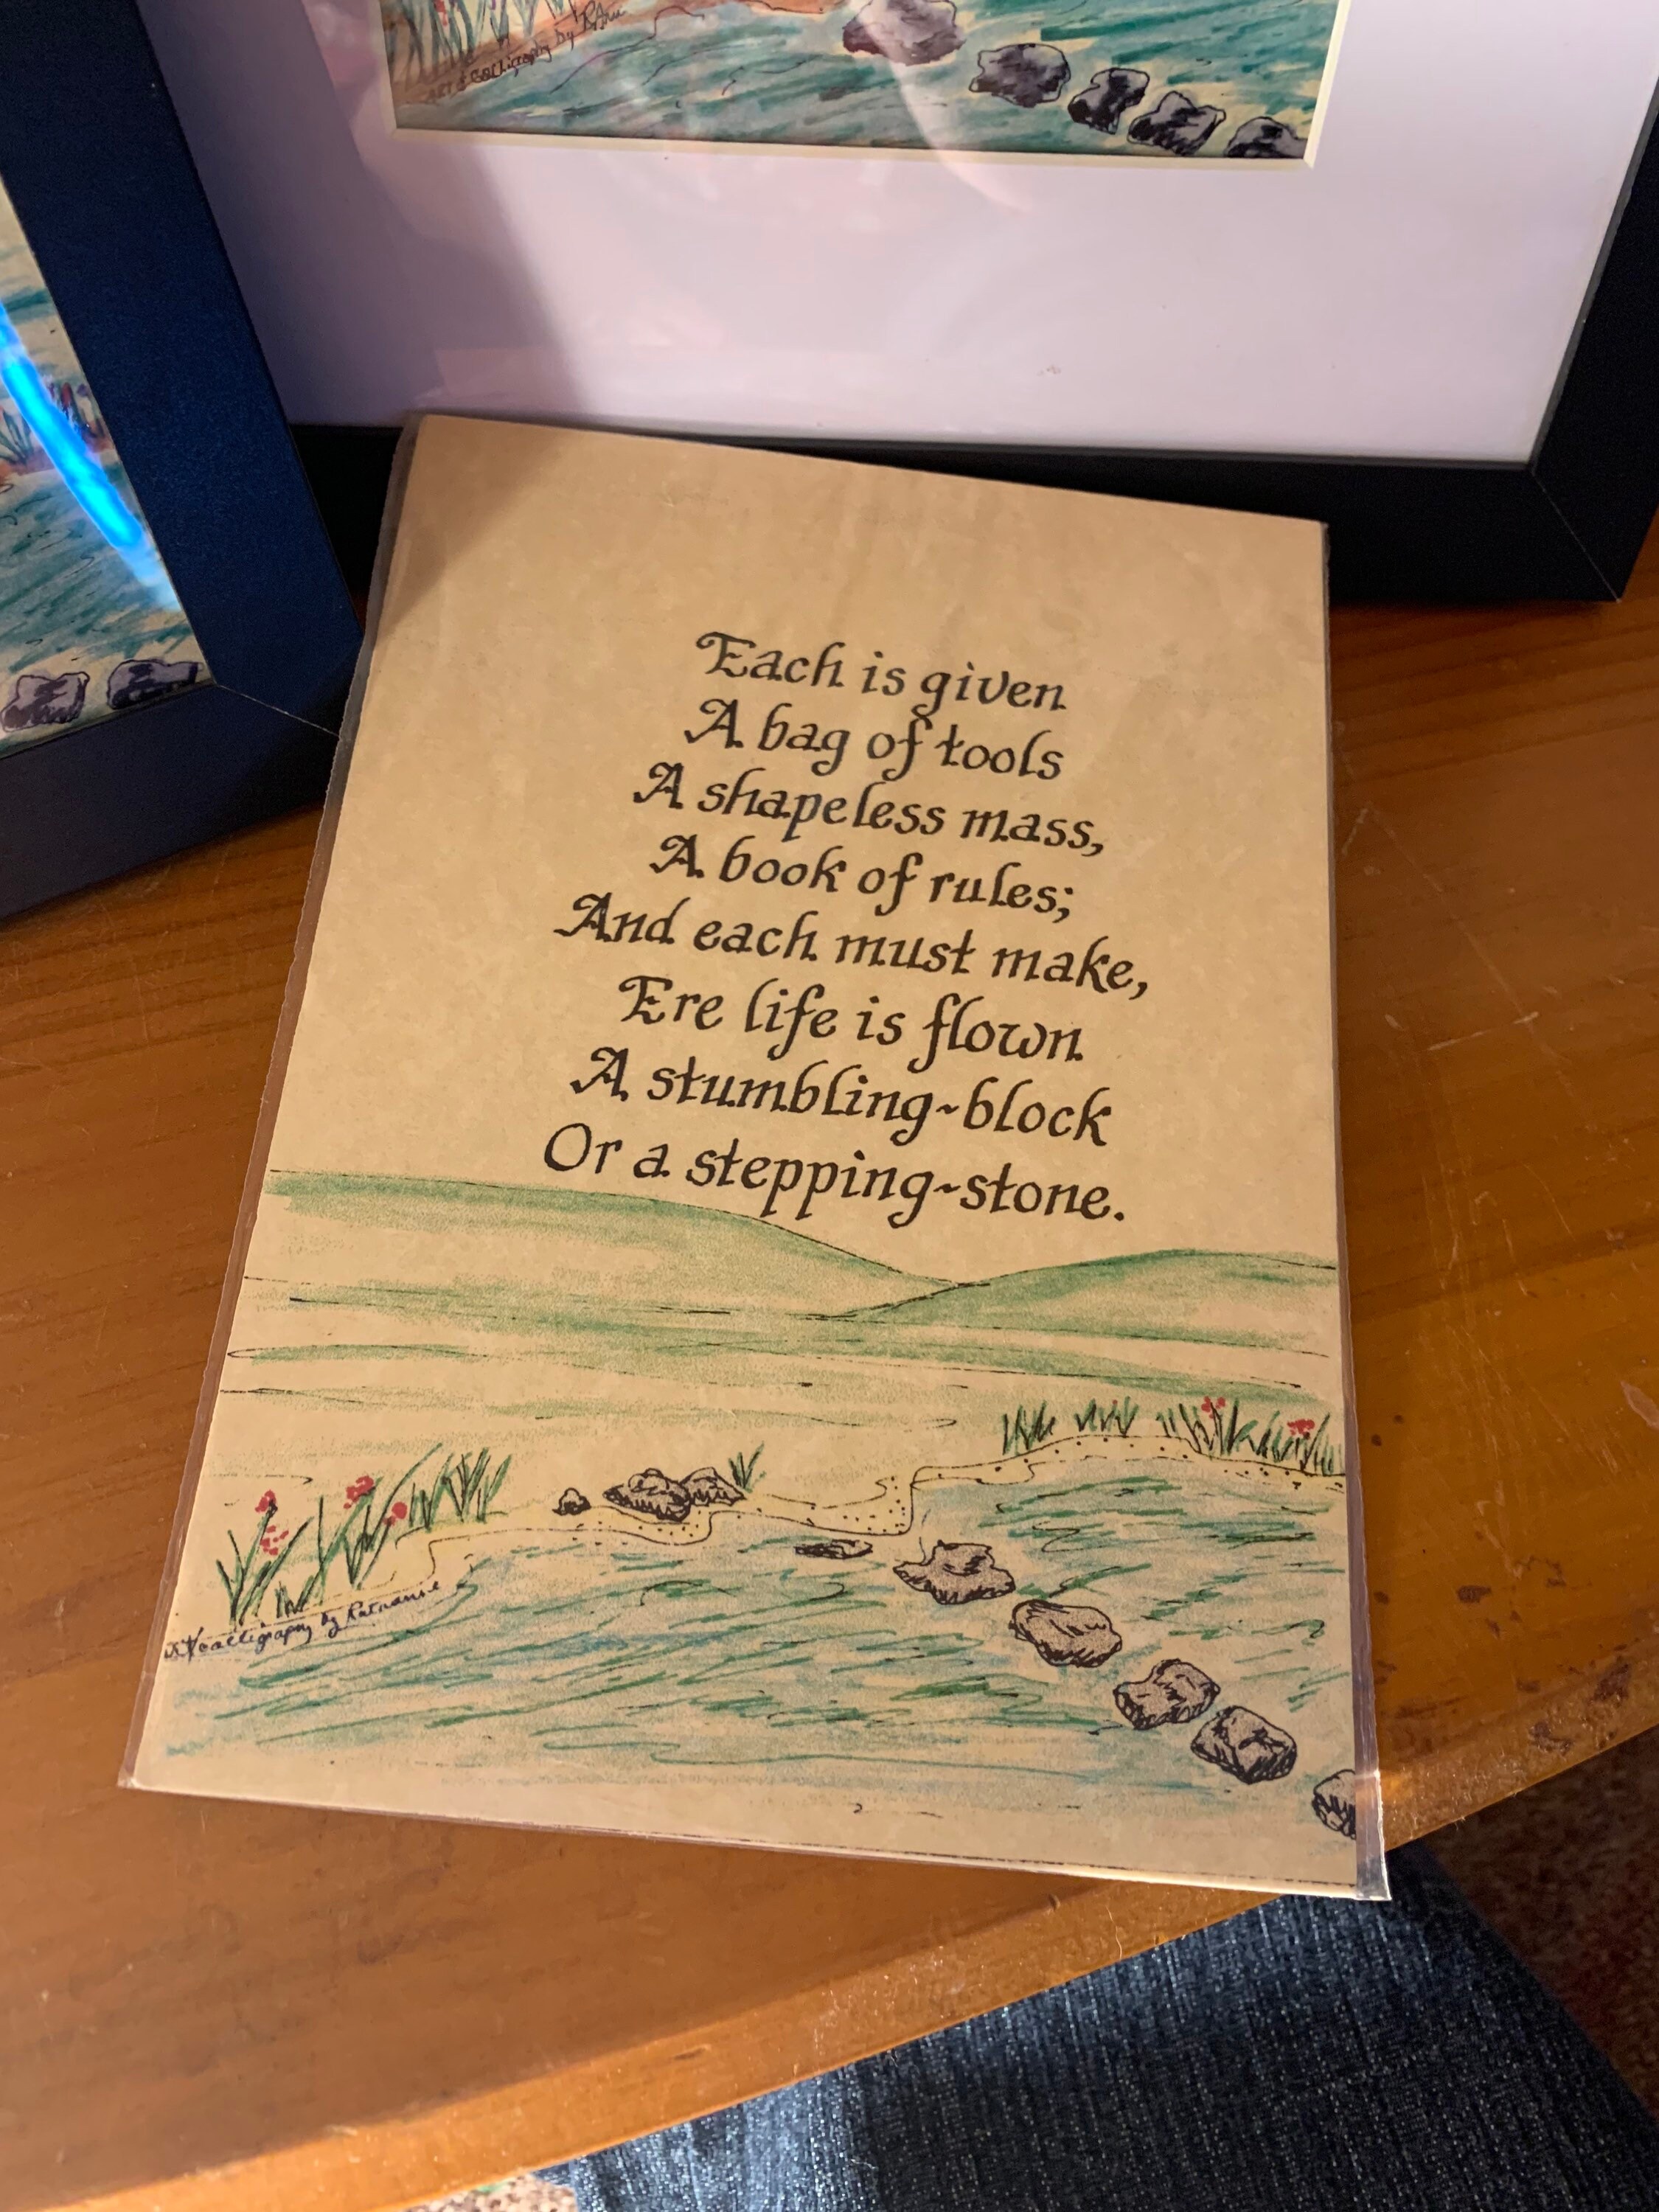 Art & Calligraphy by
Each is given
A bag of tools
A shapeless mass,
A book of rules;
And each must make,
Ere life is flown
A stumbling~block
Or a stepping~stone.
calligraphy by